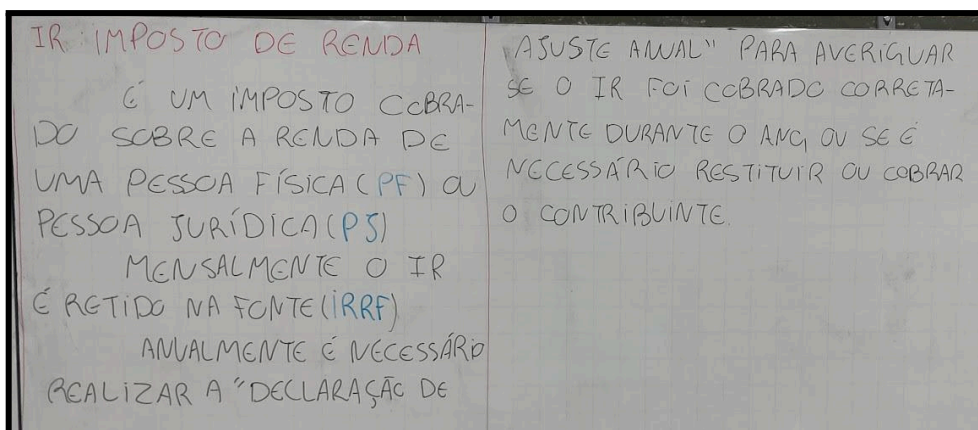 IR: IMPOSTO DE RENDA
É UM IMPOSTO COBRA-
DO SOBRE A RENDA DE
UMA PESSOA FÍSICA (PF) OU
PESSOA JURÍDICA (PJ)
MENSALMENTE O IR
É RETIDO NA FONTE (IRRF)
ANUALMENTE É NECESSÁRIO
REALIZAR A "DECLARAÇÃO DE
AJUSTE ANUAL" PARA AVERIGUAR
SE O IR FOI COBRADO CORRETA-
MENTE DURANTE O ANO, OU SE É
NECESSÁRIO RESTITUIR OU COBRAR
O CONTRIBUINTE.